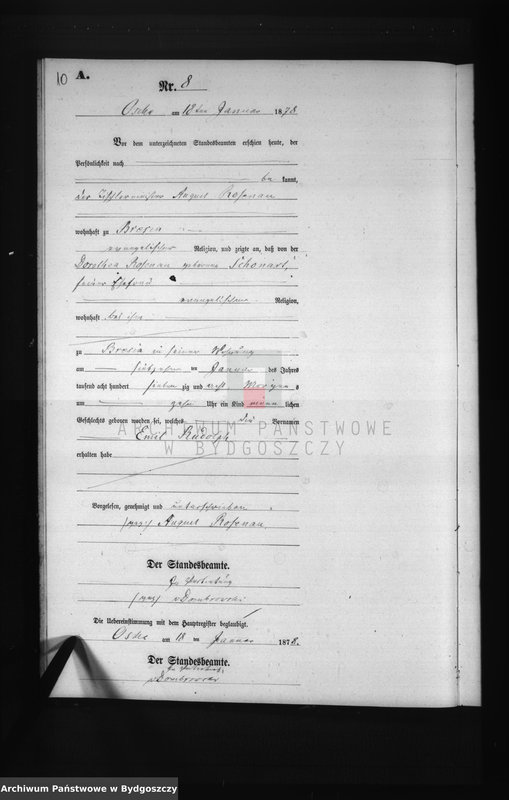 10 A.
Nr. 8
Osche am 18ten Januar 1878
Vor dem unterzeichneten Standesbeamten erschien heute, der
Persönlichkeit nach
be kannt,
der Tischlermeister August Rosenau
wohnhaft zu Brosia
evangelischer Religion, und zeigte an, daß von der
Dorothea Rosenau geborene Schonart,
seiner Ehefrau
evangelischer Religion,
wohnhaft bei ihm
zu Brosia in seiner Wohnung
am siebzehnten ten Januar des Jahres
tausend acht hundert sieben zig und acht Morgens
um zehn Uhr ein Kind männ lichen
Geschlechts geboren worden sei, welches die Vornamen
Emil Rudolph
erhalten habe
Vorgelesen, genehmigt und unterschrieben
(gez) August Rosenau.
Der Standesbeamte.
In Vertretung
(gez) v Dombrowski
Die Uebereinstimmung mit dem Hauptregister beglaubigt.
Osche am 18 ten Januar 1878.
Der Standesbeamte.
In Vertretung
v Dombrowski
ARCHIWUM PAŃSTWOWE
W BYDGOSZCZY
Archiwum Państwowe w Bydgoszczy